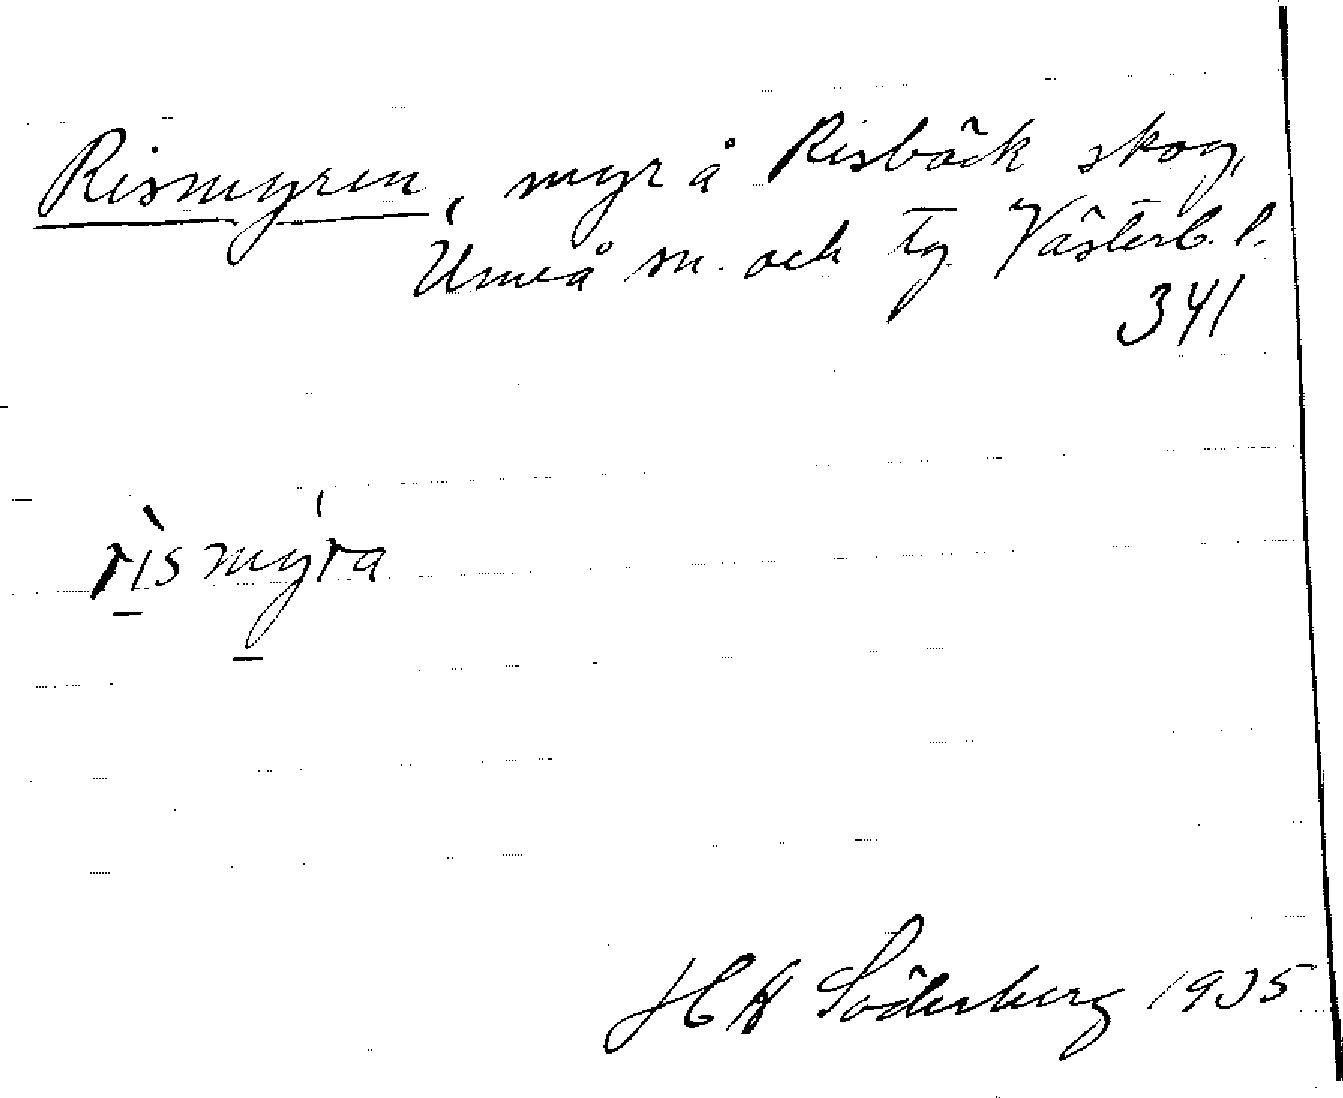 Rismyren, myr å Risbäck skog,
Umeå sn. och tg Västerb. l.
341
rìsmýra
H Söderberg 1935